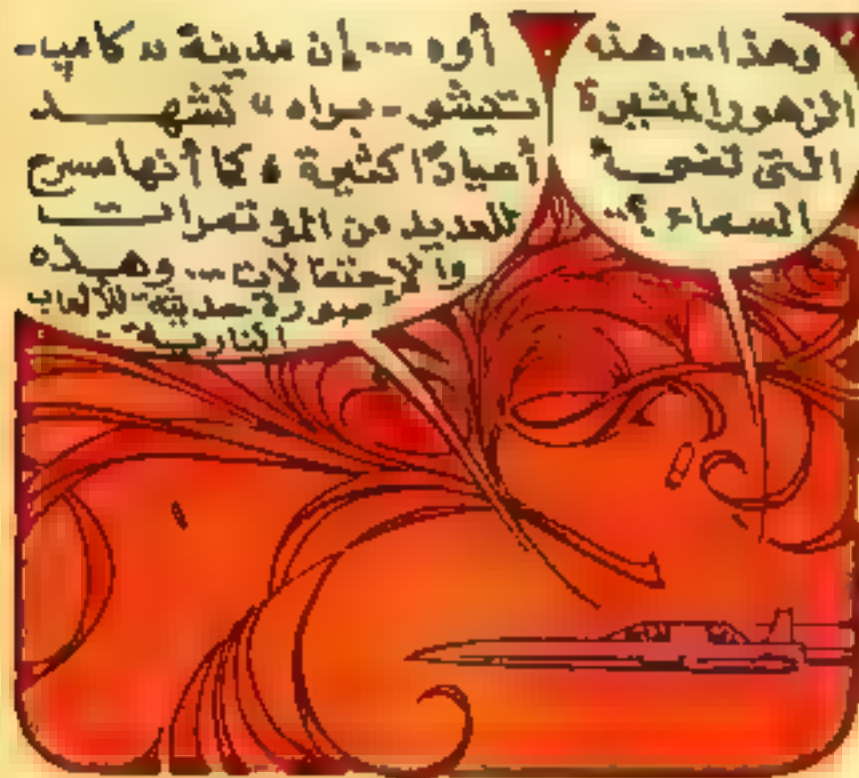 وهذا... هذه
الزهور المثيرة
التى تضىء
السماء ؟..
أوه --- إن مدينة « كامپا-
تيشو - مراه » تشهد
أعيادًا كثيرة ، كما أنها مسرح
للعديد من المؤتمرات
والاحتفالات ... وهذه
صورة حديثة للألعاب
النارية..